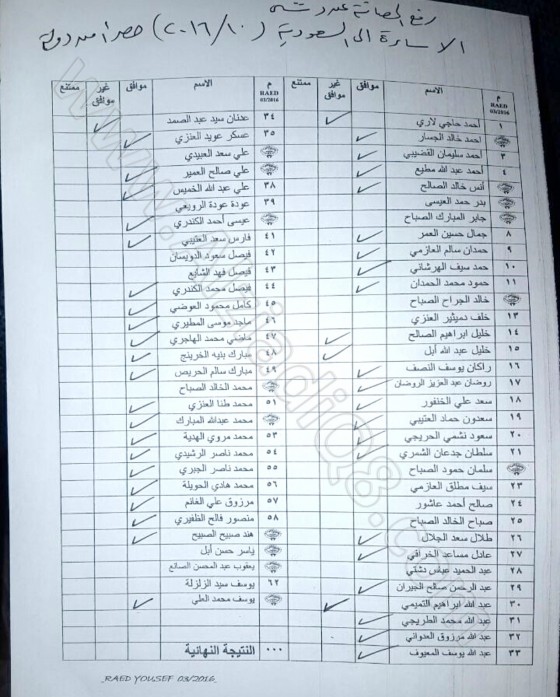 رفع الحصانة عن دشتي
الاساءة الى السعودية (٢٠١٦/١٠) حصر أمن دولة
م RAED 03/2016 الاسم موافق غير موافق ممتنع
١ أحمد حاجي لاري
أحمد خالد الجسار
٣ أحمد سليمان القضيبي
٤ أحمد عبد الله مطيع
أنس خالد الصالح
بدر حمد العيسى
جابر المبارك الصباح
٨ جمال حسين العمر
٩ حمدان سالم العازمي
١٠ حمد سيف الهرشاني
١١ حمود محمد الحمدان
خالد الجراح الصباح
١٣ خلف دميثير العنزي
١٤ خليل ابراهيم الصالح
١٥ خليل عبد الله أبل
١٦ راكان يوسف النصف
١٧ روضان عبد العزيز الروضان
١٨ سعد علي الخنفور
١٩ سعدون حماد العتيبي
٢٠ سعود نشمي الحريجي
٢١ سلطان جدعان الشمري
سلمان حمود الصباح
٢٣ سيف مطلق العازمي
٢٤ صالح أحمد عاشور
٢٥ صباح الخالد الصباح
٢٦ طلال سعد الجلال
٢٧ عادل مساعد الخرافي
٢٨ عبد الحميد عباس دشتي
٢٩ عبد الرحمن صالح الجيران
٣٠ عبد الله ابراهيم التميمي
٣١ عبد الله محمد الطريجي
٣٢ عبد الله مرزوق العدواني
٣٣ عبد الله يوسف المعيوف
م RAED 03/2016 الاسم موافق غير موافق ممتنع
٣٤ عدنان سيد عبد الصمد
٣٥ عسكر عويد العنزي
علي سعد العبيدي
علي صالح العمير
٣٨ علي عبد الله الخميس
٣٩ عودة عودة الرويعي
عيسى أحمد الكندري
٤١ فارس سعد العتيبي
٤٢ فيصل سعود الدويسان
٤٣ فيصل فهد الشايع
٤٤ فيصل محمد الكندري
٤٥ كامل محمود العوضي
٤٦ ماجد موسى المطيري
٤٧ ماضي محمد الهاجري
٤٨ مبارك بنيه الخرينج
٤٩ مبارك سالم الحريص
محمد الخالد الصباح
٥١ محمد طنا العنزي
محمد عبدالله المبارك
٥٣ محمد مروي الهدية
٥٤ محمد ناصر الرشيدي
٥٥ محمد ناصر الجبري
٥٦ محمد هادي الحويلة
٥٧ مرزوق علي الغانم
٥٨ منصور فالح الظفيري
هند صبيح الصبيح
ياسر حسن أبل
يعقوب عبد المحسن الصانع
٦٢ يوسف سيد الزلزلة
يوسف محمد العلي
٠٠٠ النتيجة النهائية
_RAED YOUSEF 03/2016_